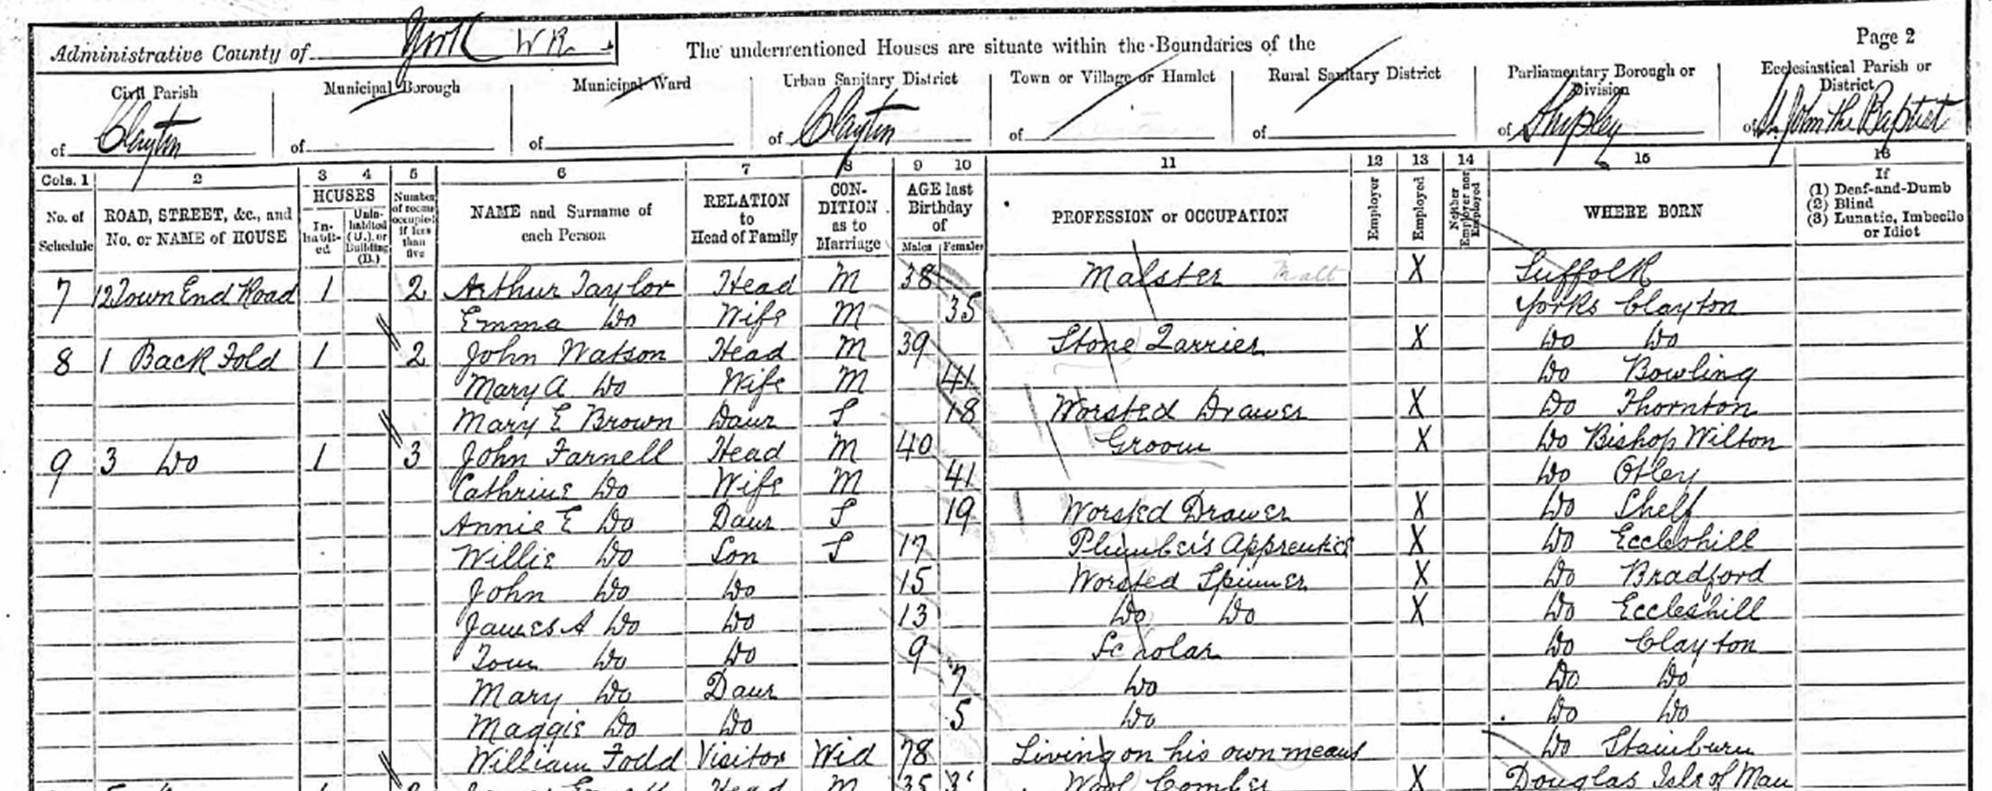 Administrative County of York WR
The undermentioned Houses are situate within the Boundaries of the
Page 2
Civil Parish of Clayton
Municipal Borough of
Municipal Ward of
Urban Sanitary District of Clayton
Town or Village or Hamlet of
Rural Sanitary District of
Parliamentary Borough or Division of Shipley
Ecclesiastical Parish or District of St. John the Baptist
Cols. 1 2 3 4 5 6 7 8 9 10 11 12 13 14 15 16
No. of Schedule
ROAD, STREET, &c., and No. or NAME of HOUSE
HOUSES
In-habit-ed
Unin-habited (U.), or Building (B.)
Number of rooms occupied if less than five
NAME and Surname of each Person
RELATION to Head of Family
CON-DITION as to Marriage
AGE last Birthday of
Males Females
PROFESSION or OCCUPATION
Employer
Employed
Neither Employer nor Employed
WHERE BORN
If (1) Deaf-and-Dumb (2) Blind (3) Lunatic, Imbecile or Idiot
7 12 Town End Road 1 2 Arthur Taylor Head M 38 Malster Malt X Suffolk
Emma Do Wife M 35 Yorks Clayton
8 1 Back Fold 1 2 John Watson Head M 39 Stone Quarrier X Do Do
Mary A Do Wife M 41 Do Bowling
Mary E Brown Daur S 18 Worsted Drawer X Do Thornton
9 3 Do 1 3 John Farnell Head M 40 Groom X Do Bishop Wilton
Cathrine Do Wife M 41 Do Otley
Annie E Do Daur S 19 Worsted Drawer X Do Shelf
Willie Do Son S 17 Plumber's Apprentice X Do Eccleshill
John Do Do 15 Worsted Spinner X Do Bradford
James A Do Do 13 Do Do X Do Eccleshill
Tom Do Do 9 Scholar Do Clayton
Mary Do Daur 7 Do Do Do
Maggie Do Do 5 Do Do Do
William Todd Visitor Wid 78 Living on his own means Do Stainburn
Head M 35 Wool Comber X Douglas Isle of Man